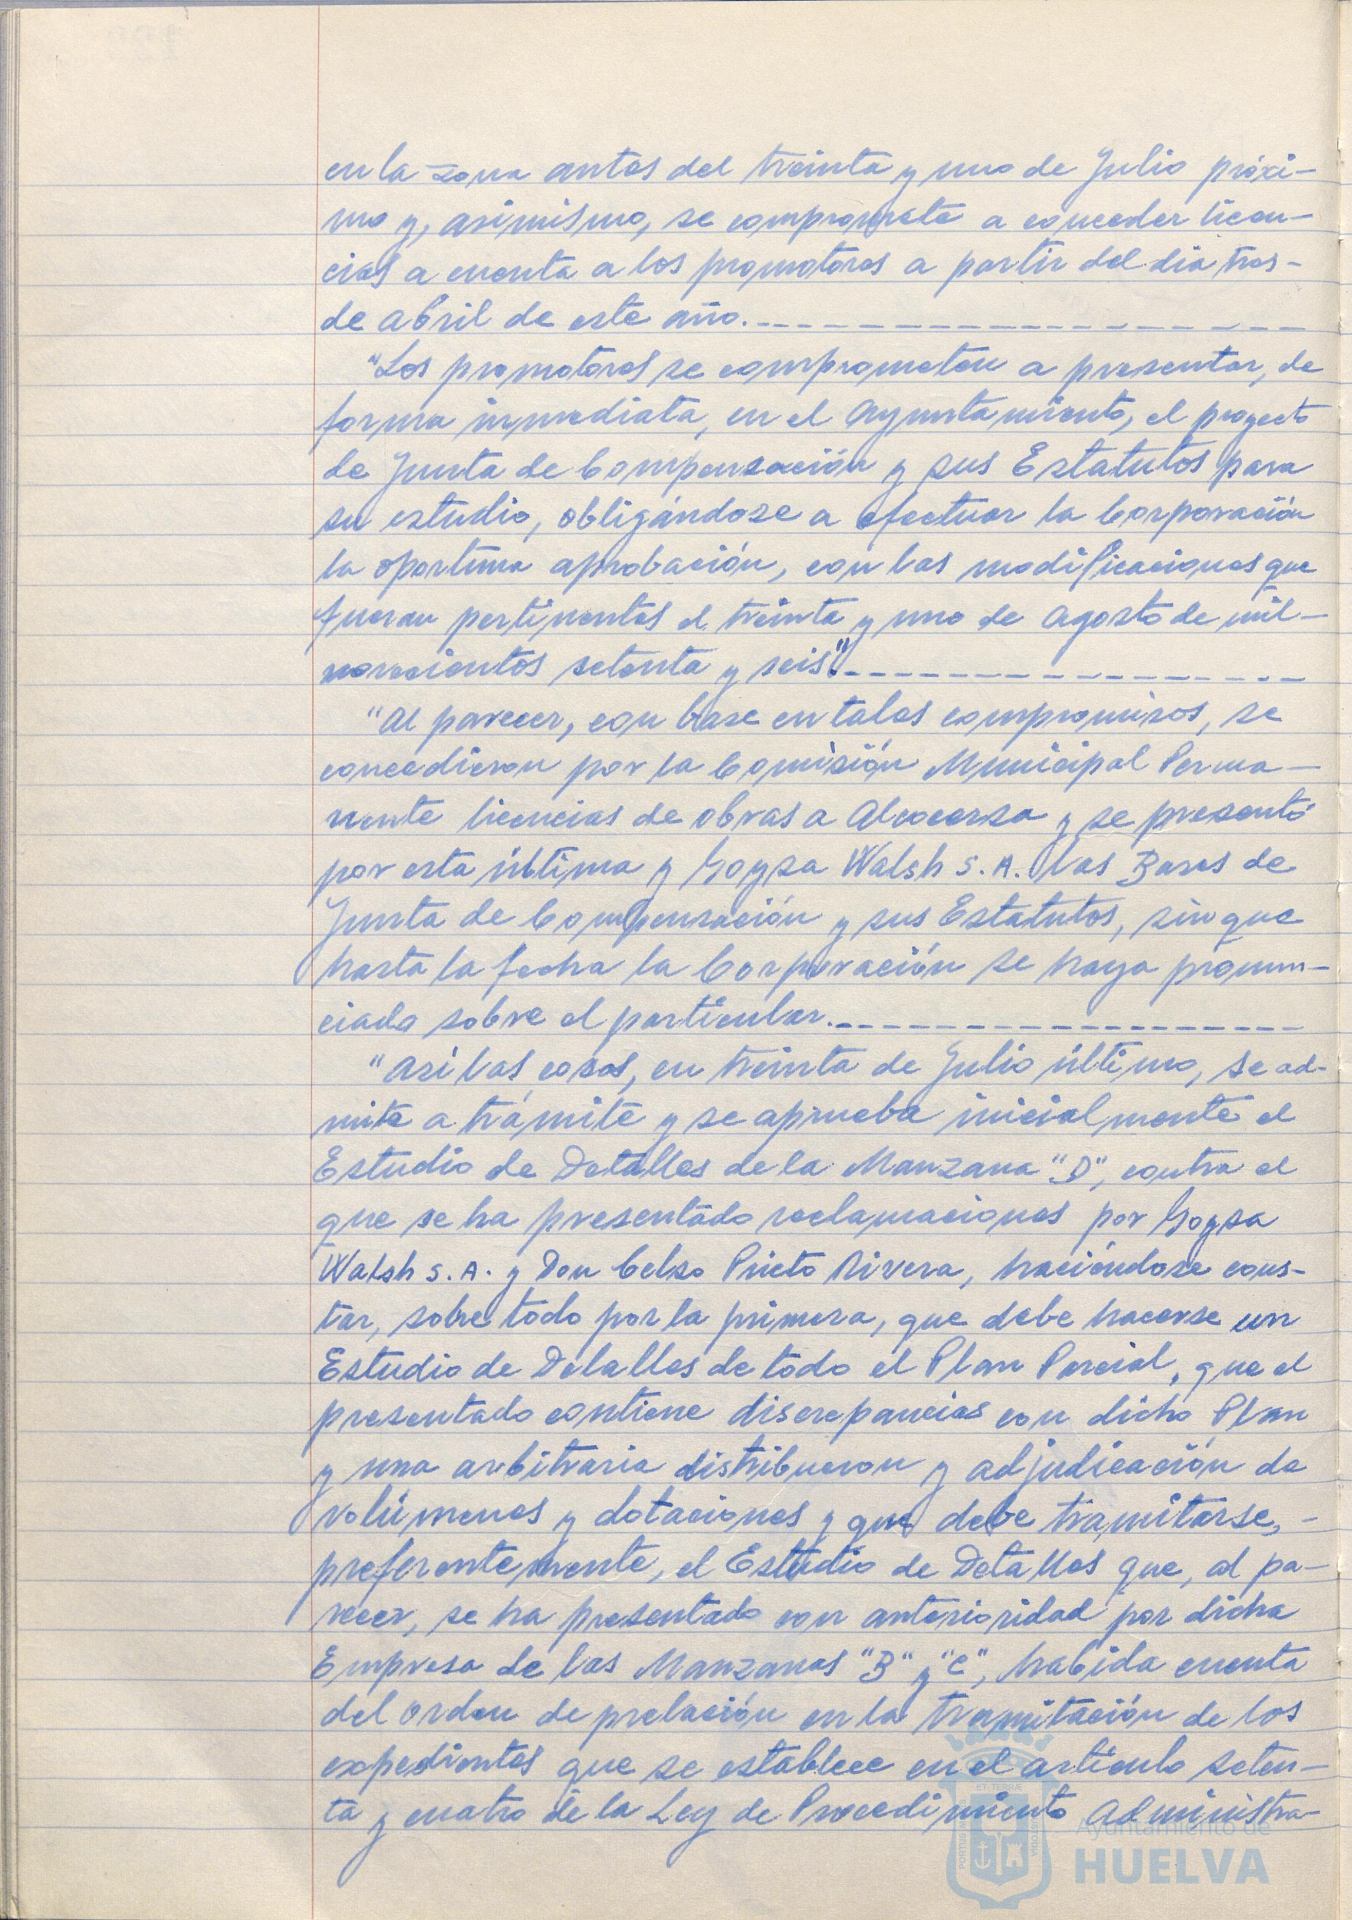 en la zona antes del treinta y uno de Julio próxi-
mo y, asimismo, se compromete a conceder licen-
cias a cuenta a los promotores a partir del dia tres-
de abril de este año.
"Los promotores se comprometen a presentar, de
forma inmediata, en el Ayuntamiento, el proyecto
de Junta de Compensación y sus Estatutos para
su estudio, obligándose a efectuar la Corporación
la oportuna aprobación, con las modificaciones que
fueran pertinentes el treinta y uno de Agosto de mil-
novecientos setenta y seis".
"Al parecer, con base en tales compromisos, se
concedieron por la Comisión Municipal Perma-
nente licencias de obras a Alcocersa y se presentó
por esta última y Goysa Walsh S.A. las Bases de
Junta de Compensación y sus Estatutos, sin que
hasta la fecha la Corporación se haya pronun-
ciado sobre el particular.
"Así las cosas, en treinta de Julio último, se ad-
mite a trámite y se aprueba inicialmente el
Estudio de Detalles de la Manzana "D", contra el
que se ha presentado reclamaciones por Goysa
Walsh S.A. y Don Celso Prieto Rivera, haciéndose cons-
tar, sobre todo por la primera, que debe hacerse un
Estudio de Detalles de todo el Plan Parcial, que el
presentado contiene discrepancias con dicho Plan
y una arbitraria distribucion y adjudicación de
volúmenes y dotaciones y que debe tramitarse,-
preferentemente, el Estudio de Detalles que, al pa-
recer, se ha presentado con anterioridad por dicha
Empresa de las Manzanas "B" y "C", habida cuenta
del orden de prelación en la tramitación de los
expedientes que se establece en el artículo seten-
ta y cuatro de la Ley de Procedimiento Administra-
Ayuntamiento de
HUELVA